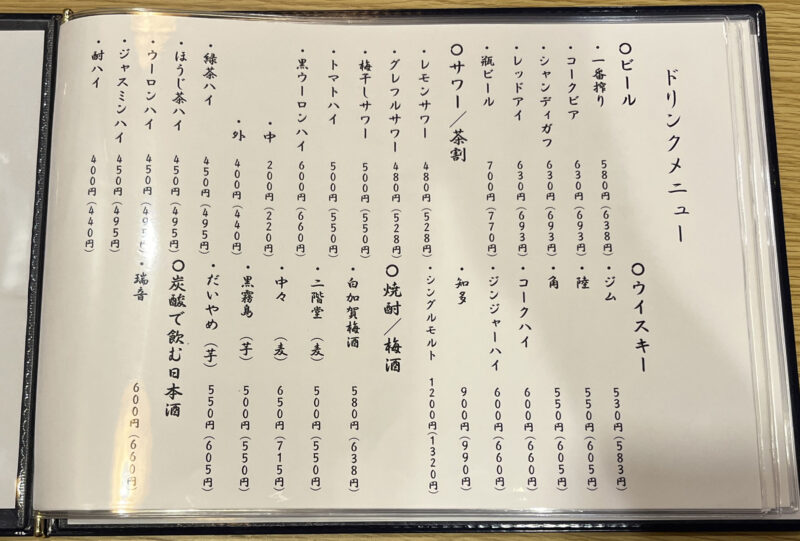 ドリンクメニュー
〇ビール
・一番搾り 580円(638円)
・コークビア 630円(693円)
・シャンディガフ 630円(693円)
・レッドアイ 630円(693円)
・瓶ビール 700円(770円)
〇サワー／茶割
・レモンサワー 480円(528円)
・グレフルサワー 480円(528円)
・梅干しサワー 500円(550円)
・トマトハイ 500円(550円)
・黒ウーロンハイ 600円(660円)
・中 200円(220円)
・外 400円(440円)
・緑茶ハイ 450円(495円)
・ほうじ茶ハイ 450円(495円)
・ウーロンハイ 450円(495円)
・ジャスミンハイ 450円(495円)
・酎ハイ 400円(440円)
〇ウイスキー
・ジム 530円(583円)
・陸 550円(605円)
・角 550円(605円)
・コークハイ 600円(660円)
・ジンジャーハイ 600円(660円)
・知多 900円(990円)
・シングルモルト 1200円(1320円)
〇焼酎／梅酒
・白加賀梅酒 580円(638円)
・二階堂(麦) 500円(550円)
・中々(麦) 650円(715円)
・黒霧島(芋) 500円(550円)
・だいやめ(芋) 550円(605円)
〇炭酸で飲む日本酒
・瑞音 600円(660円)